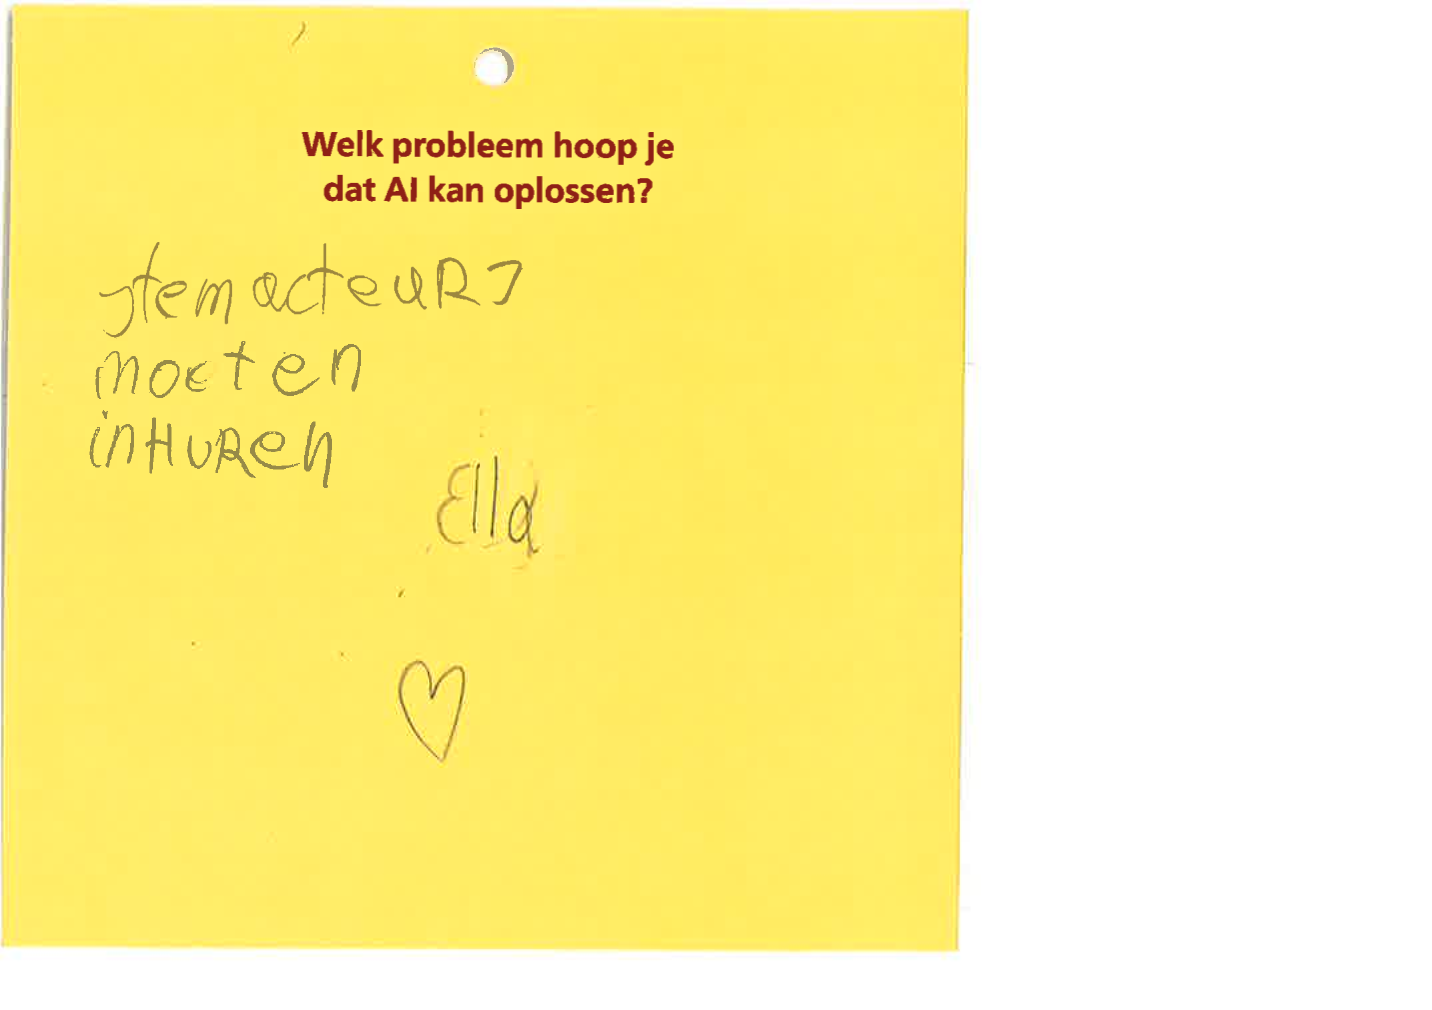 Welk probleem hoop je
dat AI kan oplossen?
stemacteurs
moeten
inHuRen
Ella